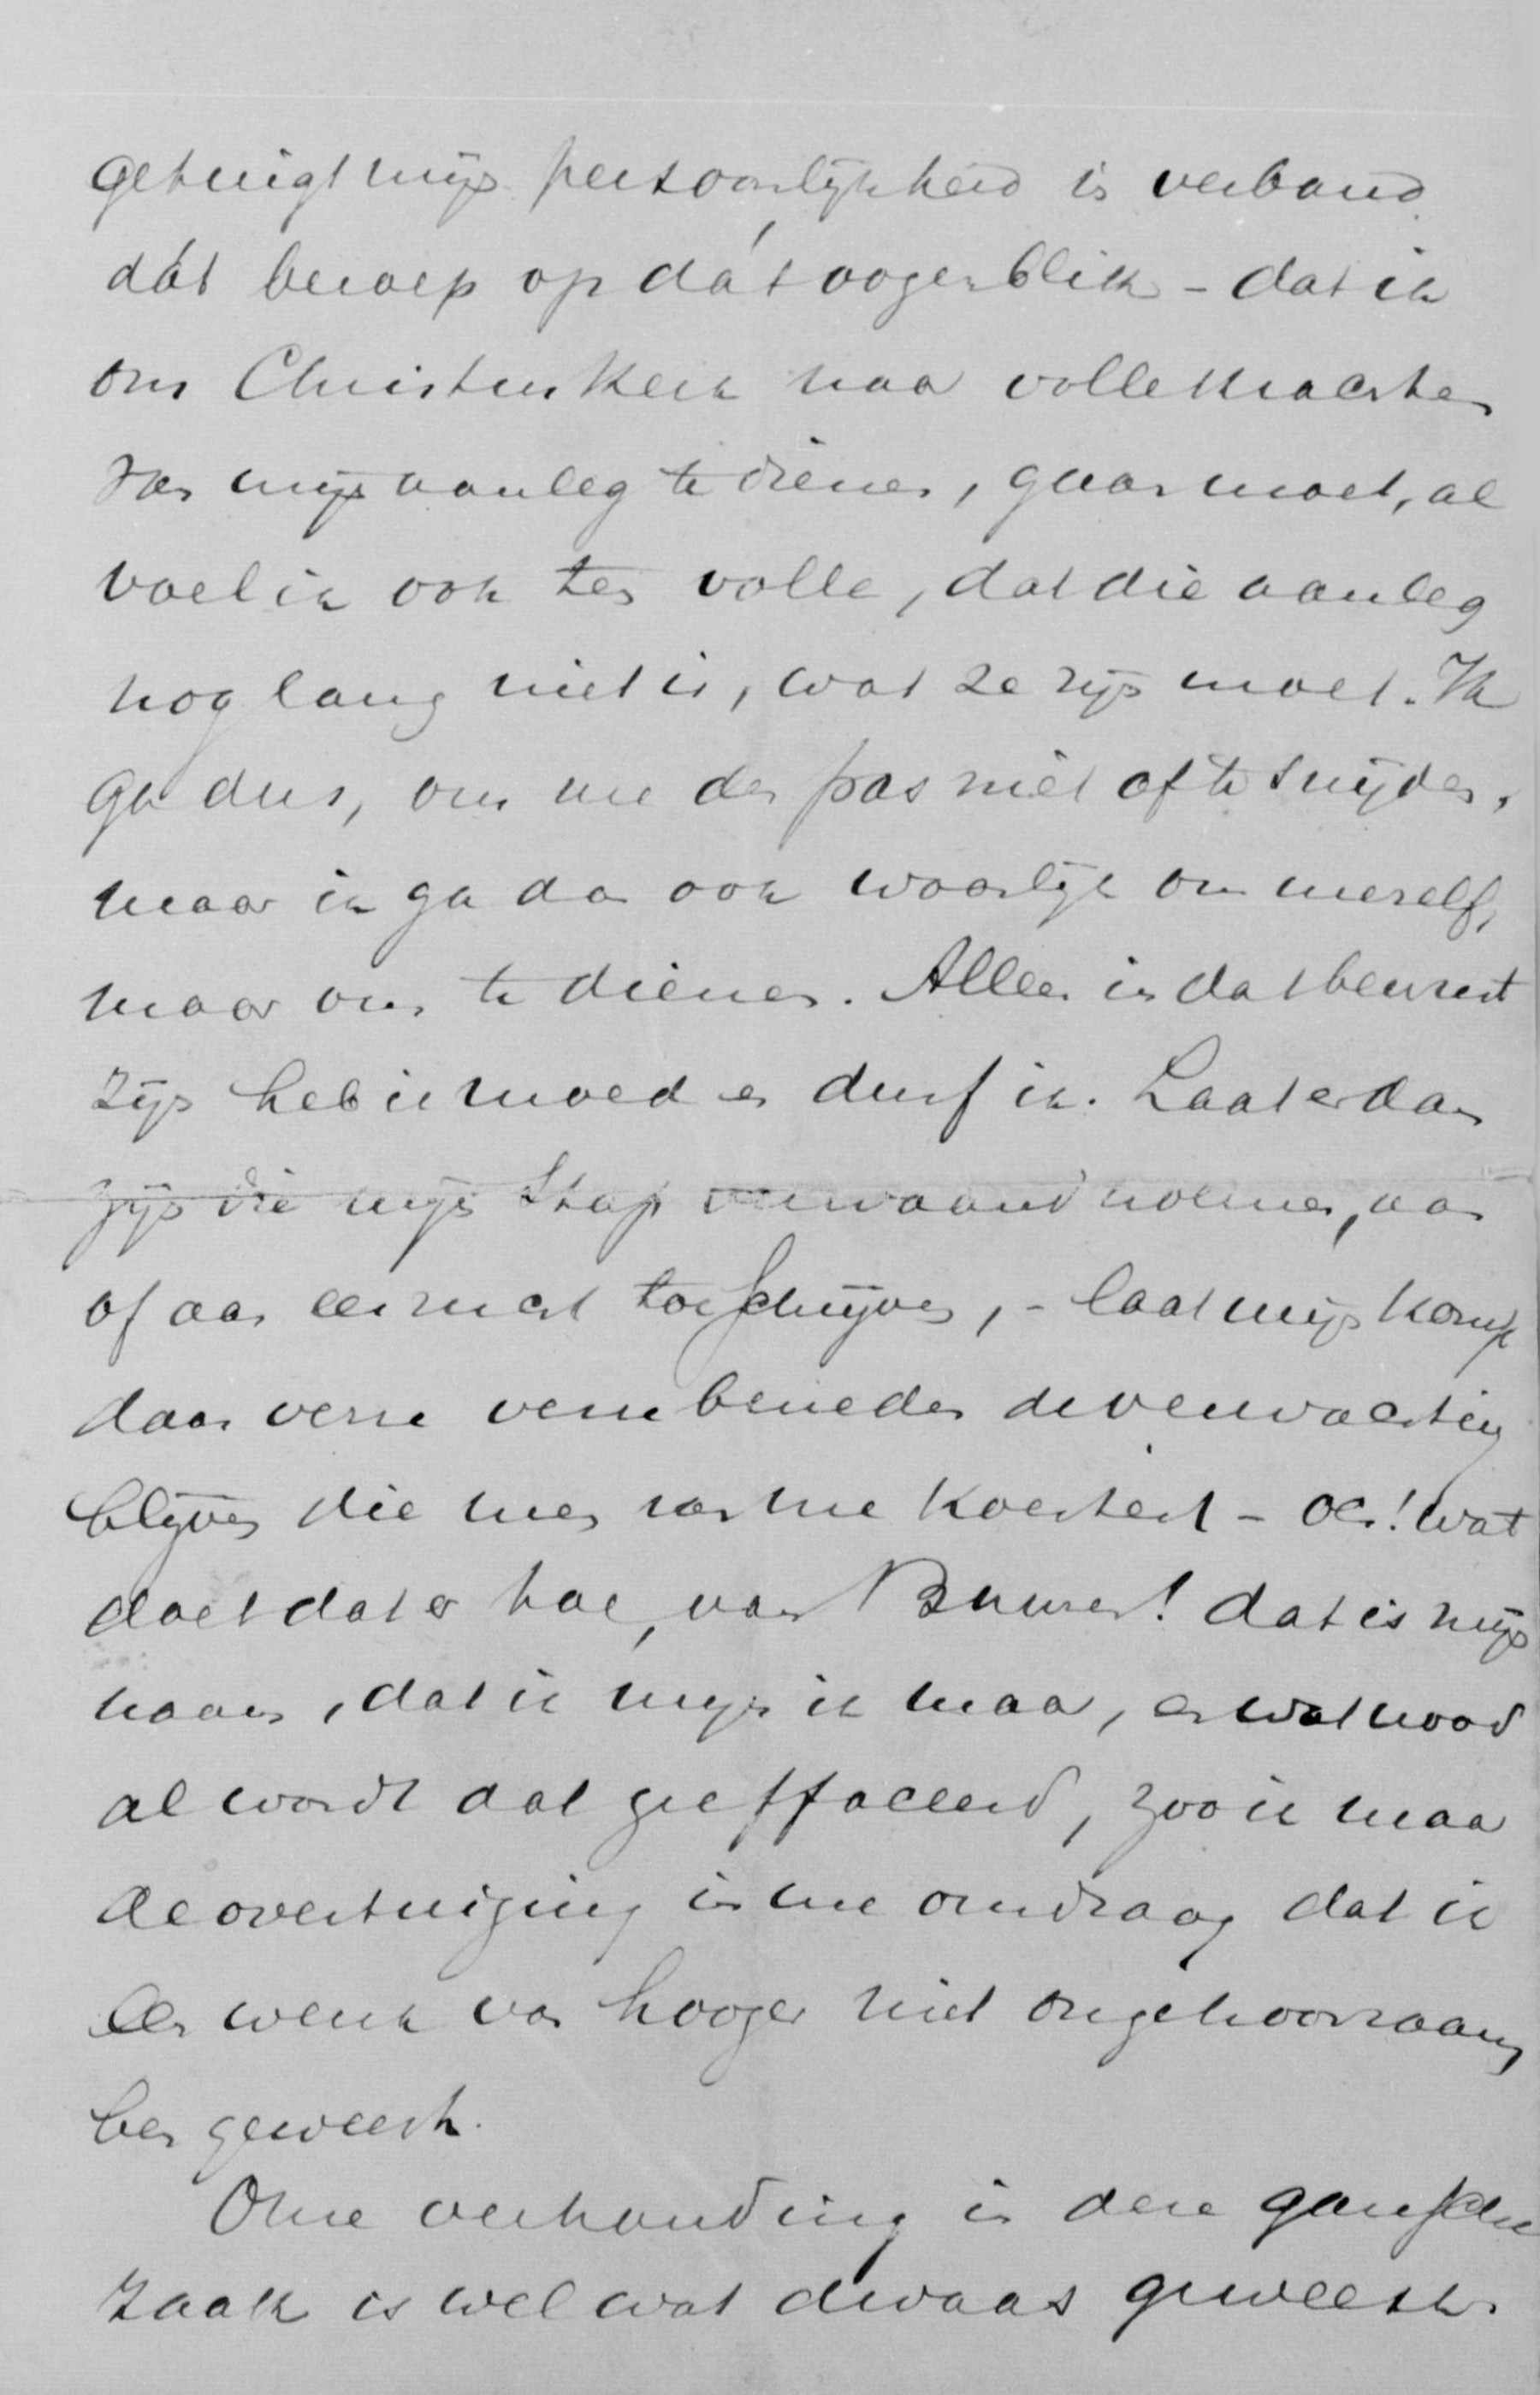 getuigt mijn persoonlijkheid in verband
dát beroep op dát oogenblik – dat ik
om Christus Kerk naar volle krachten
van mijn aanleg te dienen, gaan moet, al
voel ik ook ten volle, dat die aanleg
nog lang niet is, wat ze zijn moet. Ik
ga dus, om me den pas niet af te snijden,
maar ik ga dan ook waarlijk om mezelf,
maar om te dienen. Alleen in dat bewust
zijn heb ik moed en durf ik. Laat er dan
zijn die mijn stap verwaand noemen, aan
of aan eerzucht toeschrijven, – laat mijn komst
daar verre verre beneden de verwachting
blijven die men van me koestert – och! wat
doet dat er toe, van Buuren! dat is mijn
naam, dat is mijn ik maar, en wat nood
al wordt dat geeffaceerd, zoo ik maar
de overtuiging in me omdraag dat ik
een wenk van hooger niet ongehoorzaam
ben geweest.
Onze verhouding in deze gansche
zaak is wel wat dwaas geweest.